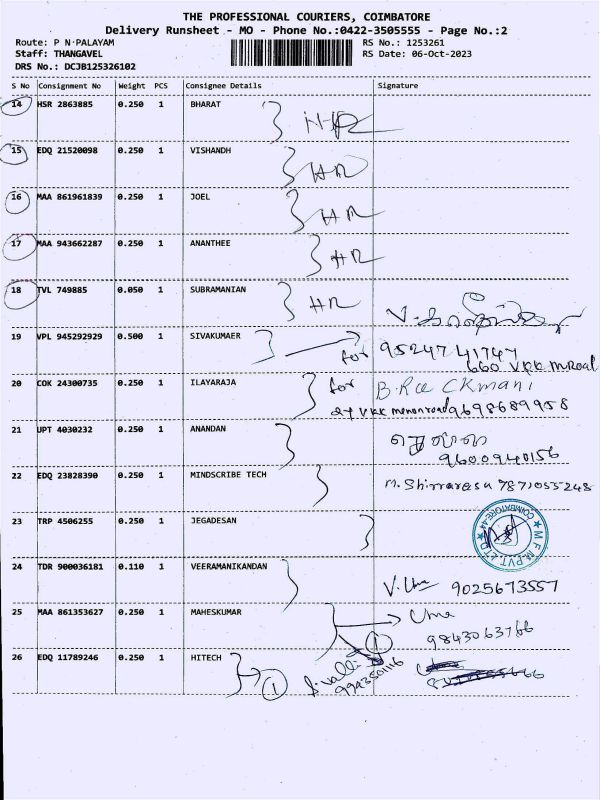 THE PROFESSIONAL COURIERS, COIMBATORE
Delivery Runsheet - MO - Phone No.:0422-3505555 - Page No.:2
Route: P N PALAYAM RS No.: 1253261
Staff: THANGAVEL RS Date: 06-Oct-2023
DRS No.: DCJB125326102
S No Consignment No Weight PCS Consignee Details Signature
14 HSR 2863885 0.250 1 BHARAT
15 EDQ 21520098 0.250 1 VISHANDH HR
16 MAA 861961839 0.250 1 JOEL HR
17 MAA 943662287 0.250 1 ANANTHEE HR
18 TVL 749885 0.050 1 SUBRAMANIAN HR
19 VPL 945292929 0.500 1 SIVAKUMAER for 9524741747
660 VKK M.Road
20 COK 24300735 0.250 1 ILAYARAJA for
VKK menon road 9698689958
21 UPT 4030232 0.250 1 ANANDAN
9600940156
22 EDQ 23828390 0.250 1 MINDSCRIBE TECH 7871055248
23 TRP 4506255 0.250 1 JEGADESAN
COIMBATORE-44
M F M PVT. LTD
24 TDR 900036181 0.110 1 VEERAMANIKANDAN V. Uma 9025673557
25 MAA 861353627 0.250 1 MAHESKUMAR Uma
1 9843063766
26 EDQ 11789246 0.250 1 HITECH 1 S. Valli